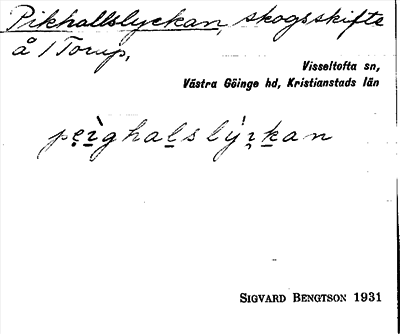 Pikhallslyckan, skogsskifte
å 1 Torup,
Visseltofta sn,
Västra Göinge hd, Kristianstads län
SIGVARD BENGTSON 1931